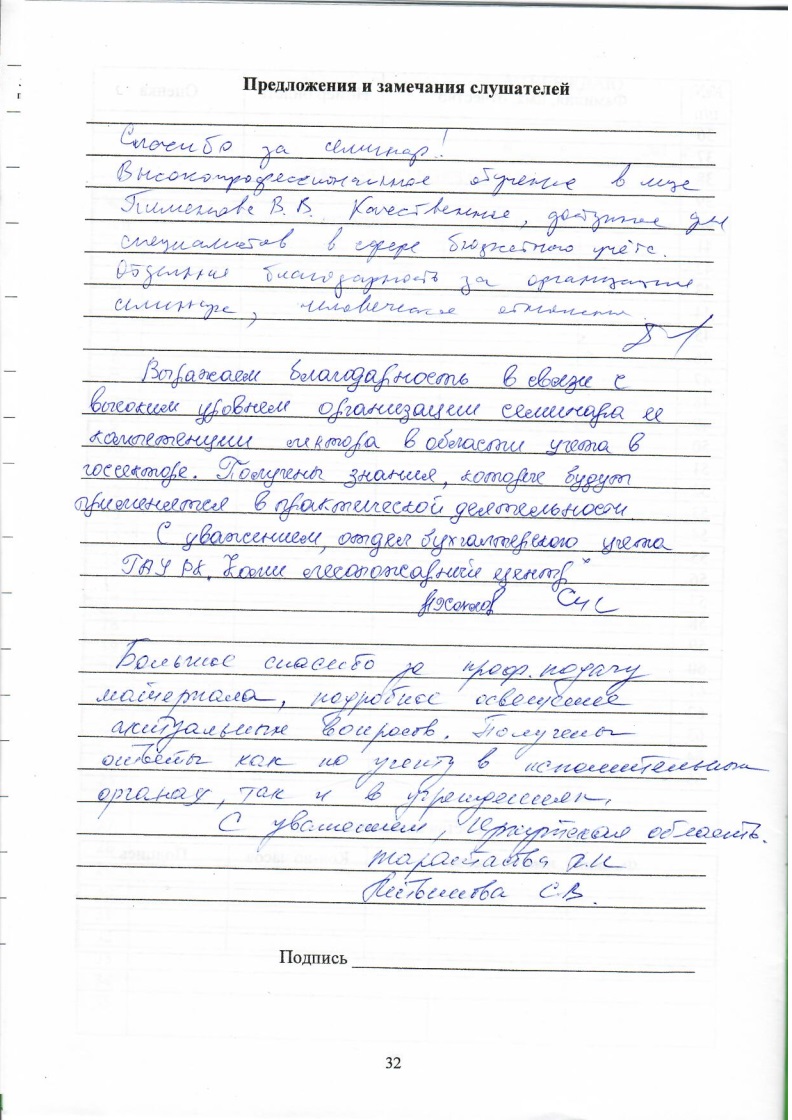 Предложения и замечания слушателей
Спасибо за семинар!
Высокопрофессиональное обучение в лице
Пименова В.В. Качественное, доступное для
специалистов в сфере бюджетного учёта.
Отдельная благодарность за организацию
семинара, человеческое отношение.
Выражаем благодарность в связи с
высоким уровнем организации семинара и
компетенции лектора в области учета в
госсекторе. Получены знания, которые будут
применяться в практической деятельности.
С уважением, отдел бухгалтерского учета
ГАУ РК „Коми лесопожарный центр"
Большое спасибо за проф. подачу
материала, подробное освещение
актуальных вопросов. Получены
ответы как по учету в исполнительных
органах, так и в учреждениях.
С уважением, Иркутская область.
С.В.
Подпись
32